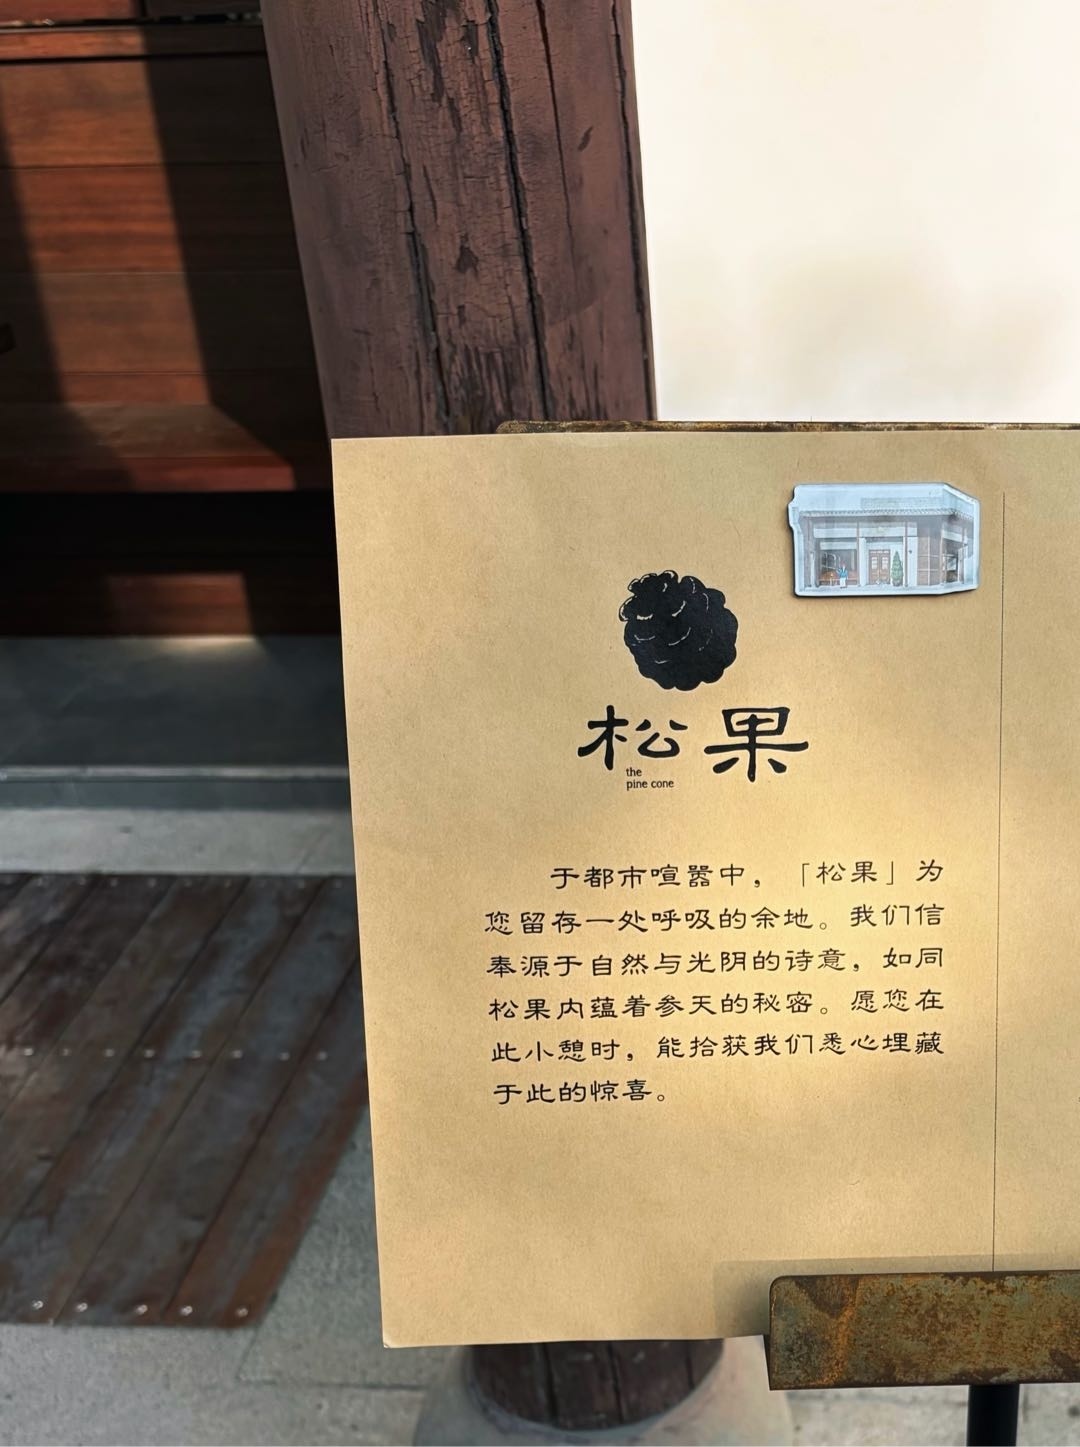 松果
the
pine cone
于都市喧嚣中，「松果」为
您留存一处呼吸的余地。我们信
奉源于自然与光阴的诗意，如同
松果内蕴着参天的秘密。愿您在
此小憩时，能拾获我们悉心埋藏
于此的惊喜。